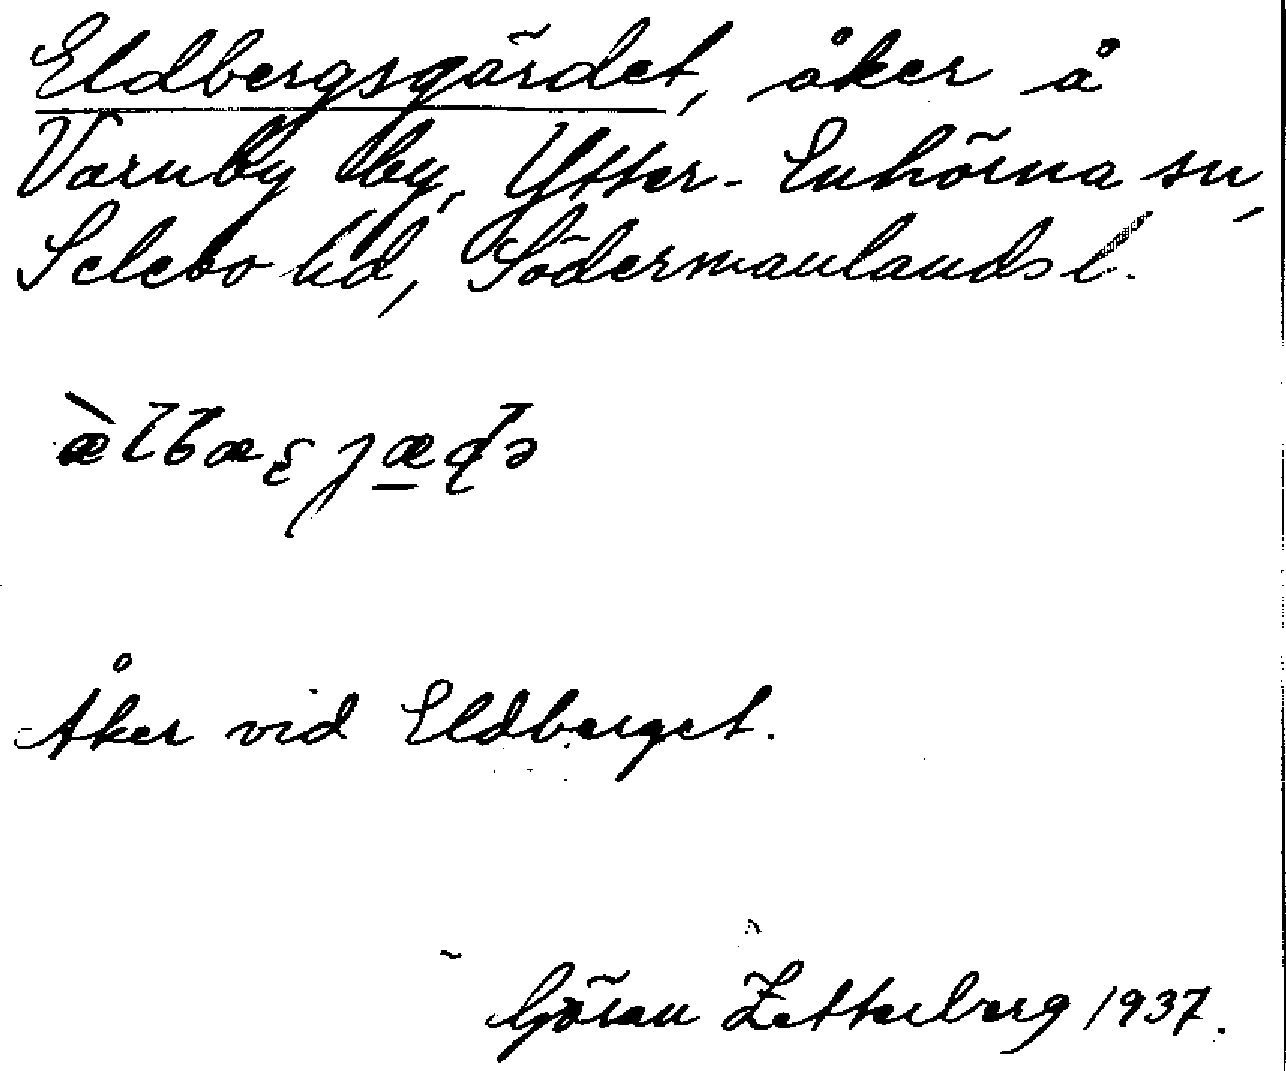 Eldbergsgärdet, åker å
Varnby by, Ytter-Enhörna sn,
Selebo hd, Södermanlands l.
Åker vid Eldberget.
Göran Zetterberg 1937.